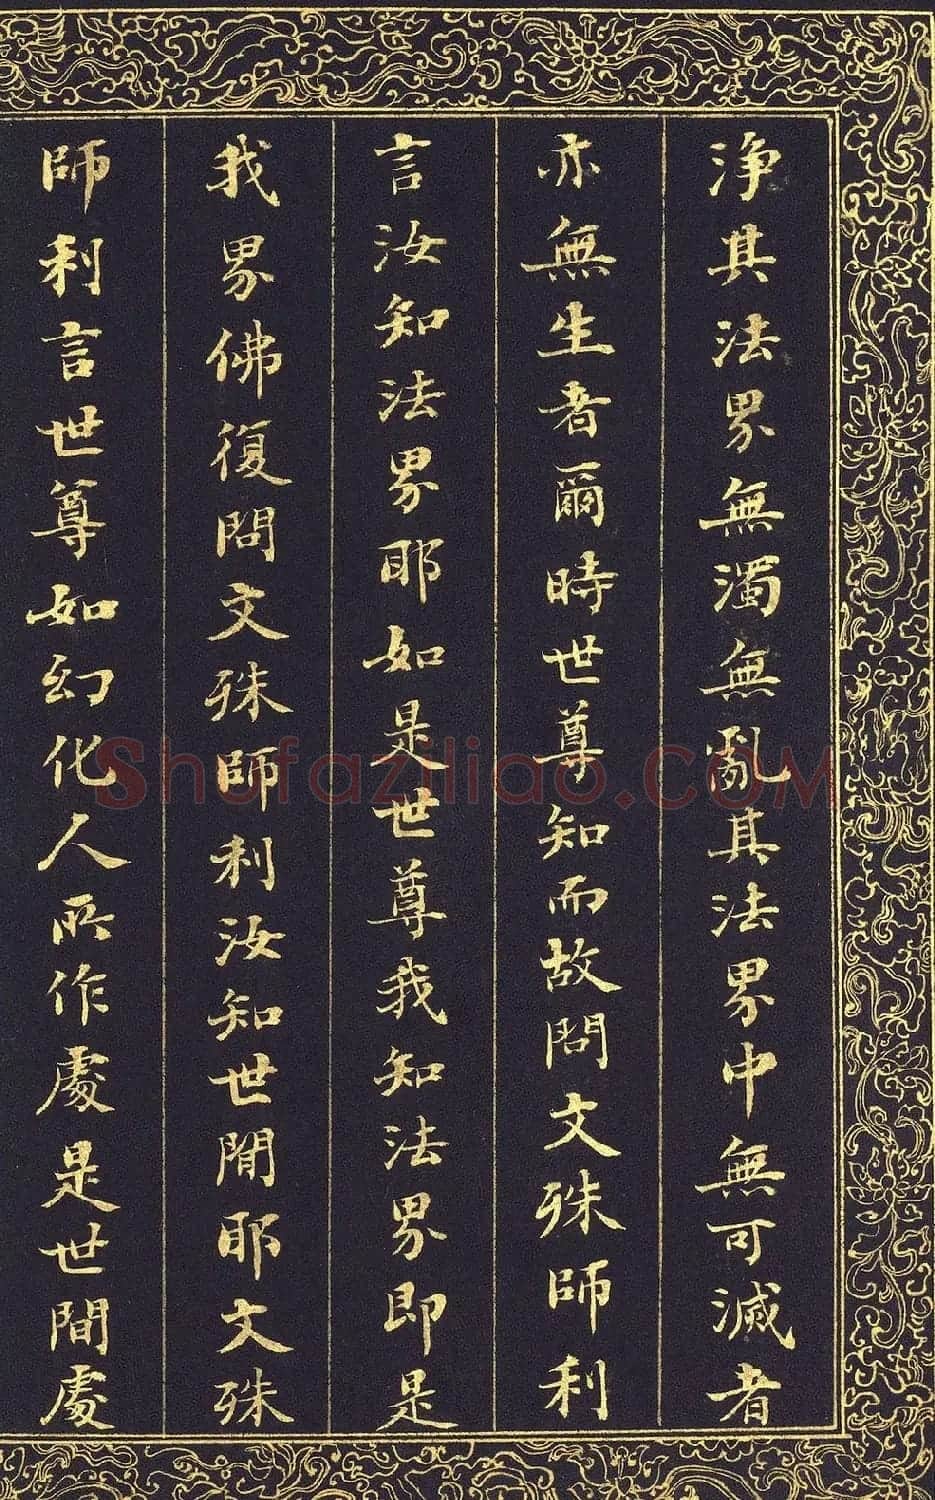 淨其法界無濁無亂其法界中無可滅者
亦無生者爾時世尊知而故問文殊師利
言汝知法界耶如是世尊我知法界即是
我界佛復問文殊師利汝知世間耶文殊
師利言世尊如幻化人所作處是世間處
Shufaziliao.COM